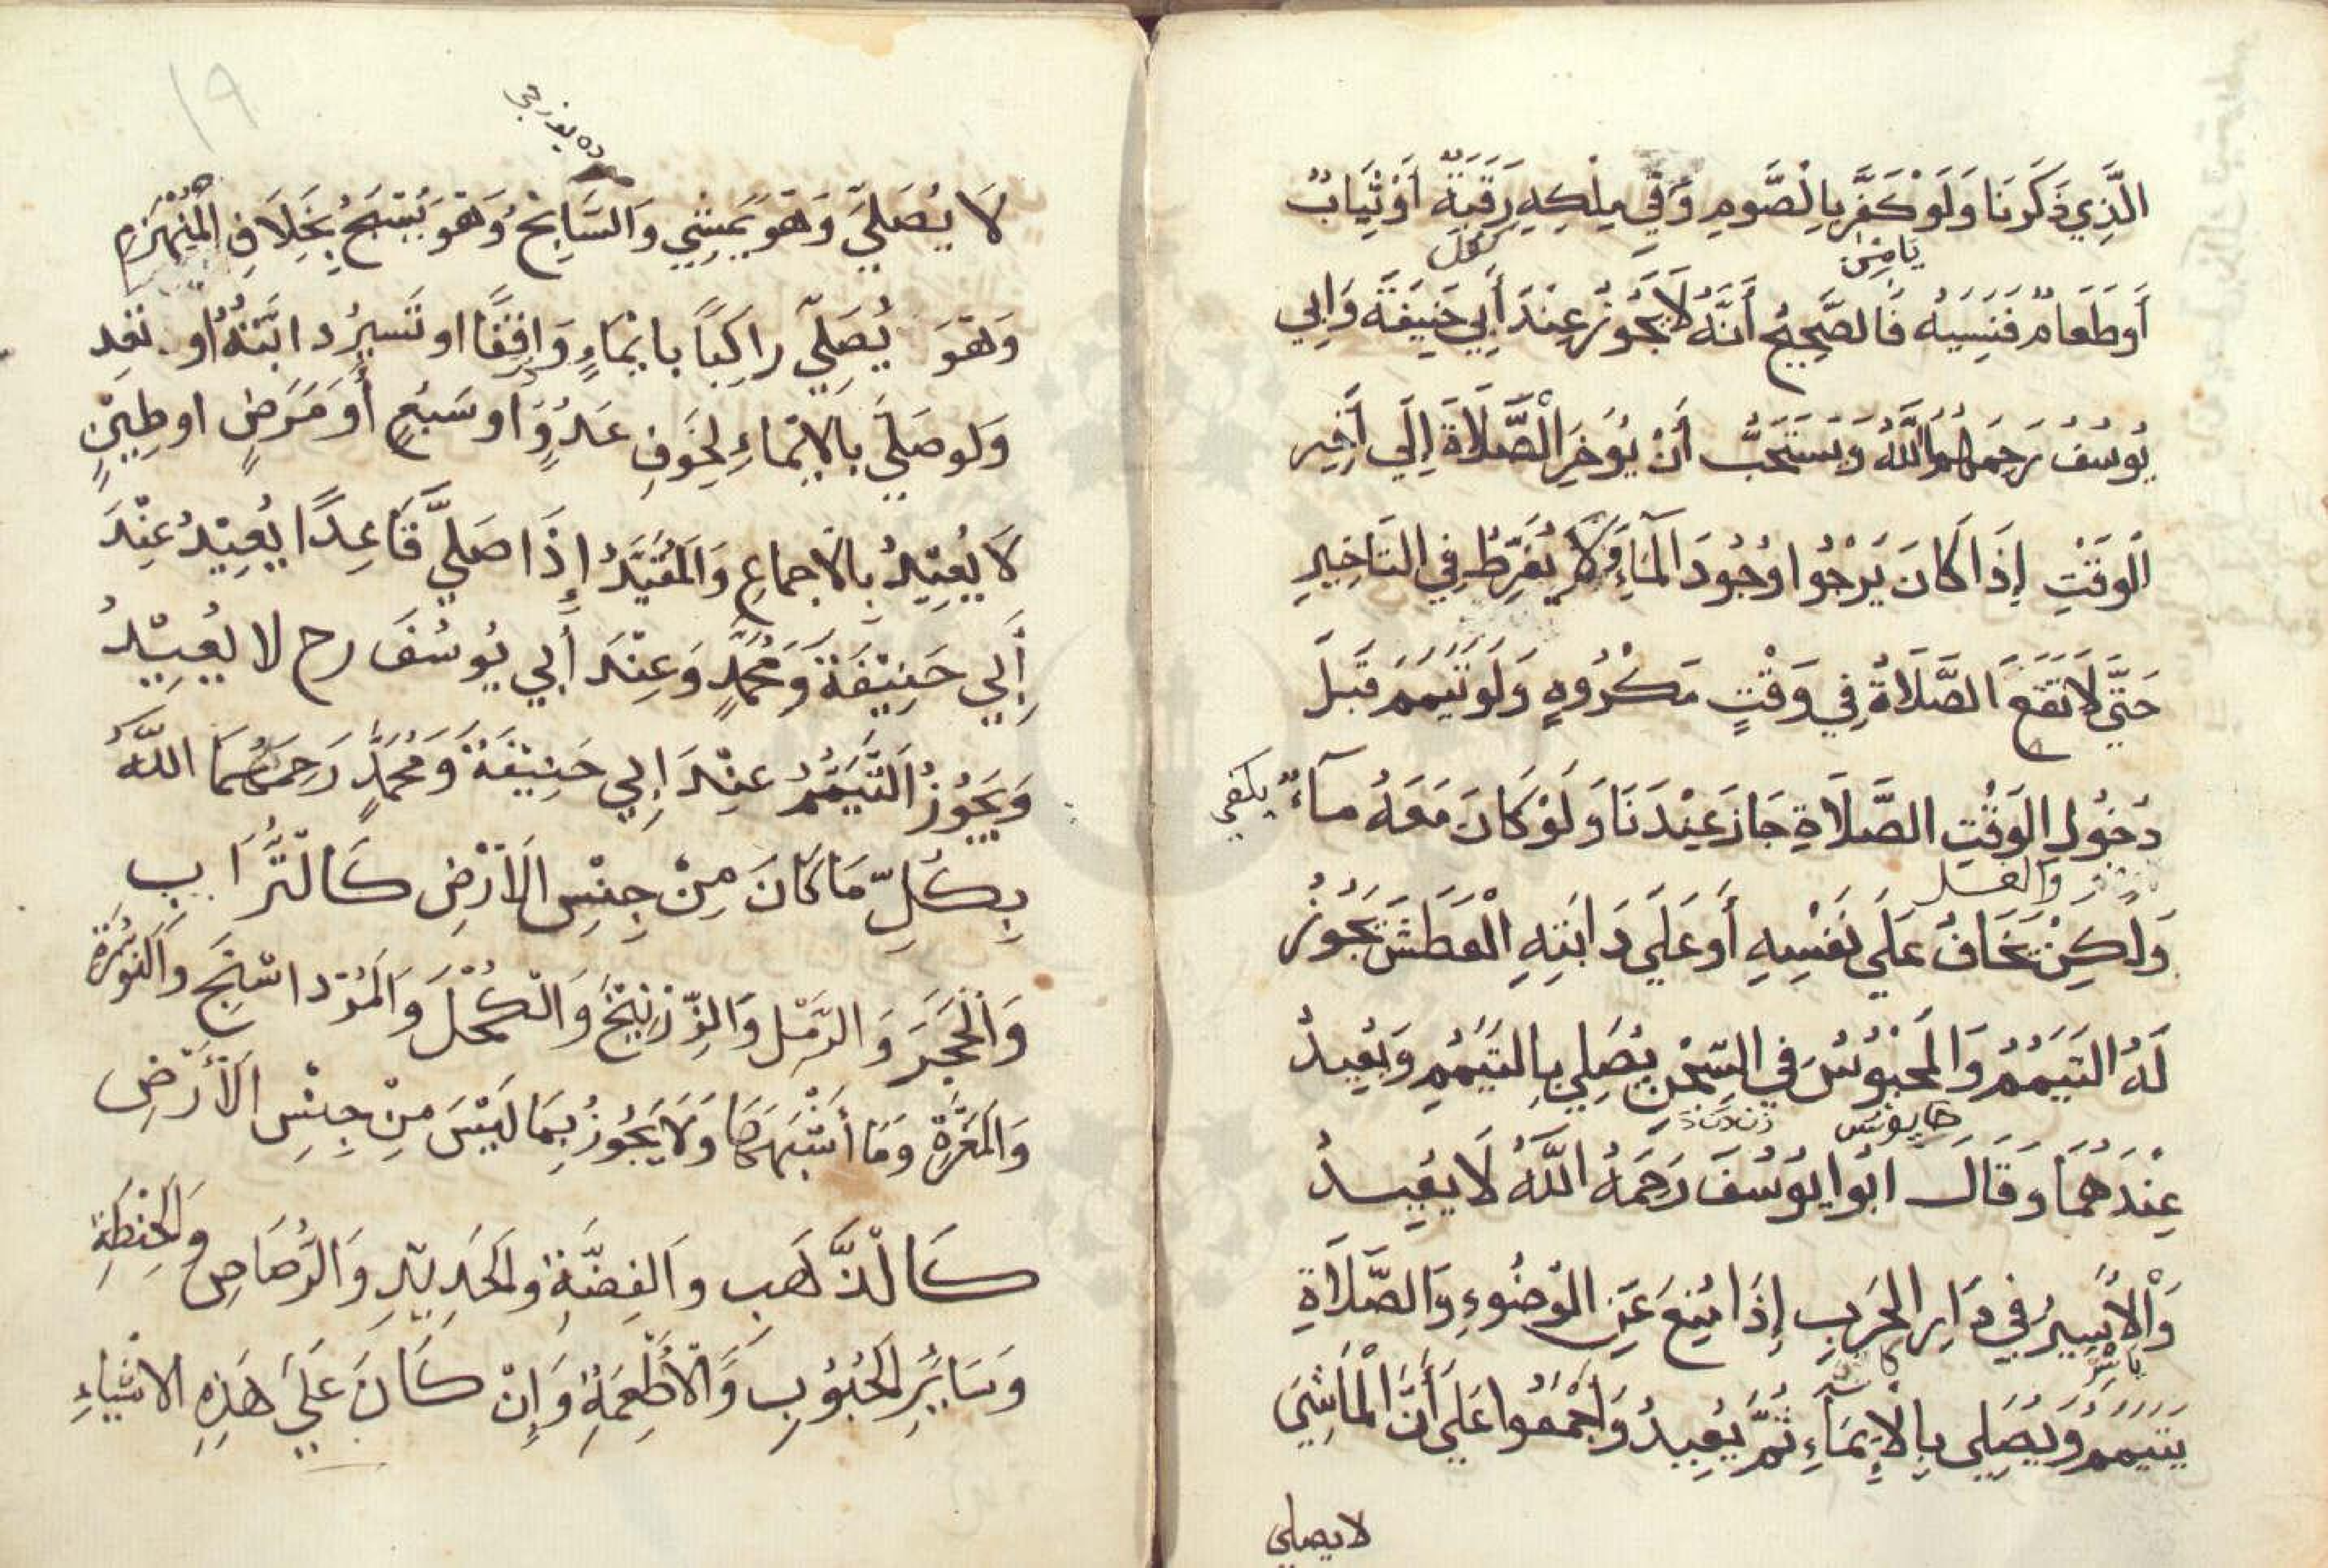 الَّذِي ذَكَرْنَا وَلَوْ كَفَّرَ بِالصَّومِ وَفِي مِلْكِهِ رَقَبَةٌ أَوْ ثِيَابٌ
أَوطَعَامٌ فَنَسِيَهُ فَالصَّحِيحُ أَنَّهُ لَا يَجُوزُ عِنْدَ أَبِي حَنِيفَةَ وَابِي
يُوسُفَ رَحِمَهُمَا اللَّهُ وَيَسْتَحَبُّ أَنْ يُوَخِرَ الْصَّلَاةَ إِلَي أَخِيرِ
الْوَقْتِ إِذَا كَانَ يَرْجُوا وُجُودَ الْمَاءِ وَلَا يُفَرِّطُ فِي التَاخِيرِ
حَتَّي لَا تَقَعَ الصَّلَاةُ فِي وَقْتٍ مَكْرُوهٍ وَلَوتَيَمم قَبلَ
دُخُولِ الوَقْتِ الصَّلَاةِ جَازَ عِنْدَنَا وَلَوْ كَانَ مَعَهُ مآءٌ يكفي
وَلَكِنْ يَخَافُ عَلَي نَفْسِهِ أَو عَلَي دَابَتِهِ الْعَطَشَ يَجُوزُ
لَهُ التَيَمُمُ وَالمَحْبُوسُ فِي السِّجْنِ يُصَلِي بِالتَيَمُمِ وَيُعِيدُ
عِنْدَهُمَا وَقَالَ ابُوا يُوسُفَ رَحِمَهُ اللَّهُ لَا يُعِيدُ
وَالْأَسِيرُ فِي دَارِ الحَربِ إِذَا مُنِعَ عَنِ الوُضُوءِ وَالصَّلَاةِ
يَتَيَممُ وَيُصَلِي بِالْإِيمَاءِ ثُمَّ يُعِيدُ وَاجْمَعُوا عَلَي أَنَّ الْمَاشِيَ
لا يصلي
١٩
لَا يُصَلِيَّ وَهُوَ يَمشِي وَالسَّابِحُ وَهُوَ يُسَبِحُ بِخِلَافِ الْمُنْهَزِمِ
وَهُوَ يُصَلِّي رَاكِبًا بايْمَاءٍ وَاقِفًا او تَسِيرُ دابَّتهُ او نعد
وَلَو صَلَيَ بِالايْمَاءِ لِخَوفِ عَدُوٍّ او سَبُعٍ أَو مَرَضٍ او طِيْنٍ
لَا يُعِيْدُ بِالاجماعِ وَالمُقَيَّدُ إِذَا صَلَيَّ قَاعِدًا يُعِيْدُ عِنْدَ
أَبِي حَنِيْفَةَ وَمُحَمَّدٍ وَعِنْدَ أَبِي يُوسُفَ رح لا يُعِيْدُ
وَيَجُوزُ التَّيَمُّمُ عِنْدَ ابِي حَنِيْفَةَ وَمُحَمَّدٍ رَحِمَهُمَا اللَّهُ
بِكُلِّ مَا كَانَ مِنْ جِنْسِ الأَرْضِ كَالْتُّرَابِ
وَالْحَجَرَ وَالرَّمْلِ وَالزِّرْنِيْخَ وَالْكُحْلَ وَالمُرْدَاسَنجَ وَالنُورَةَ
وَالمَغْرَةِ وَمَا أَشْبَهَهَا وَلَا يَجُوزُ بِمَا لَيْسَ مِنْ جِنْسِ الأَرْضِ
كَالْذَّهَبِ وَالفِضَّةِ والحَدِيْدِ وَالرُّصَاصِ وَالحِنْطَةِ
وَسَايِرِ الحُبُوبِ وَالْأَطْعِمَةِ وَإِنْ كَانَ عَلَيَ هَذِهِ الاشْيَاءِ